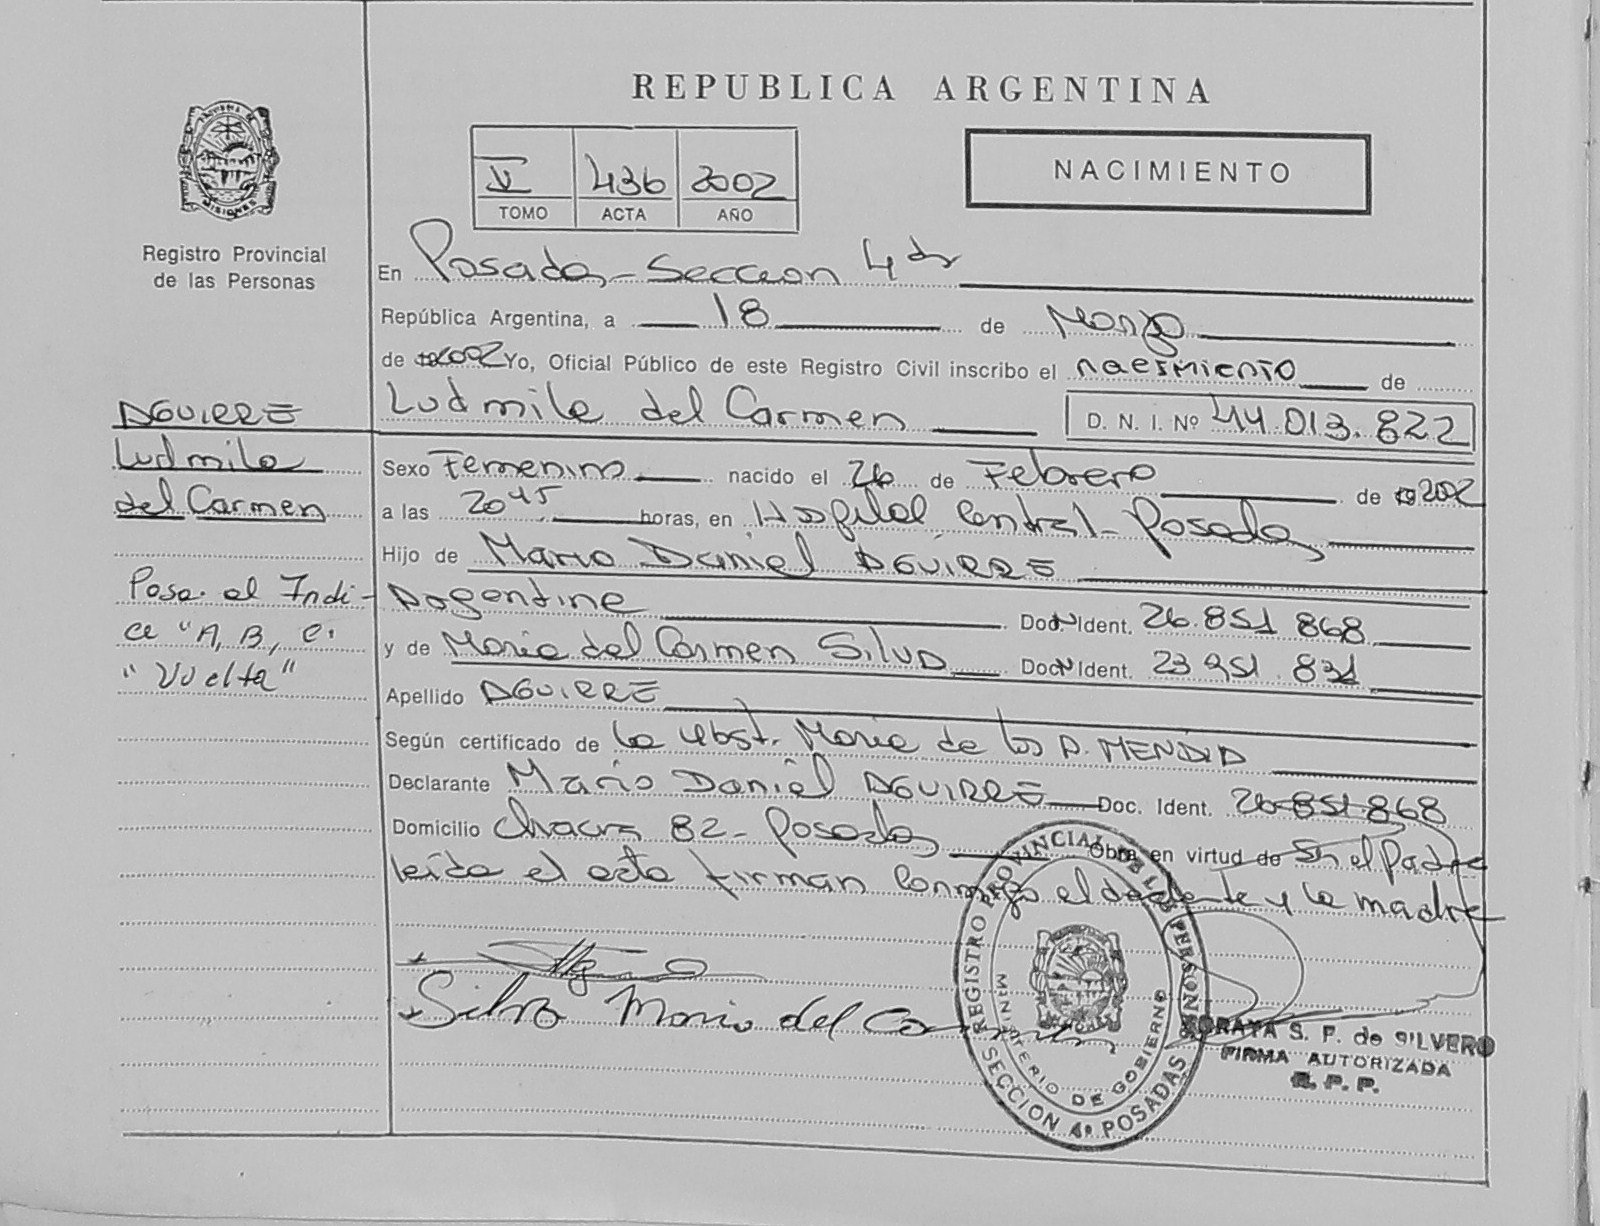 REPUBLICA ARGENTINA
NACIMIENTO
V 436 2002
TOMO ACTA AÑO
MISIONES
Registro Provincial
de las Personas
En Posadas, Seccion 4ta
República Argentina, a 18 de Marzo
de 2002 Yo, Oficial Público de este Registro Civil inscribo el nacimiento de
Ludmila del Carmen D. N. I. Nº 44.013.822
AGUIRRE
Ludmila
del Carmen
Pase al Indi-
ce "A, B, C.
"Vuelta"
Sexo Femenino nacido el 26 de Febrero de 2002
a las 20 45 horas, en Hospital Central - Posadas
Hijo de Mario Daniel AGUIRRE
Argentina Doc. Ident. 26.851 868
y de Maria del Carmen Silva Doc. Ident. 23 951 831
Apellido AGUIRRE
Según certificado de la obst. Maria de los A. MENDID
Declarante Mario Daniel AGUIRRE Doc. Ident. 26 851 868
Domicilio Chacra 82 - Posadas Obra en virtud de Ser el Padre
leida el acta firman Conmigo el declarante y la madre
Silva Maria del Carmen
REGISTRO PROVINCIAL DE LAS PERSONAS
MINISTERIO DE GOBIERNO
SECCION 4ª POSADAS
SORAYA S. F. de SILVERO
FIRMA AUTORIZADA
R. P. P.